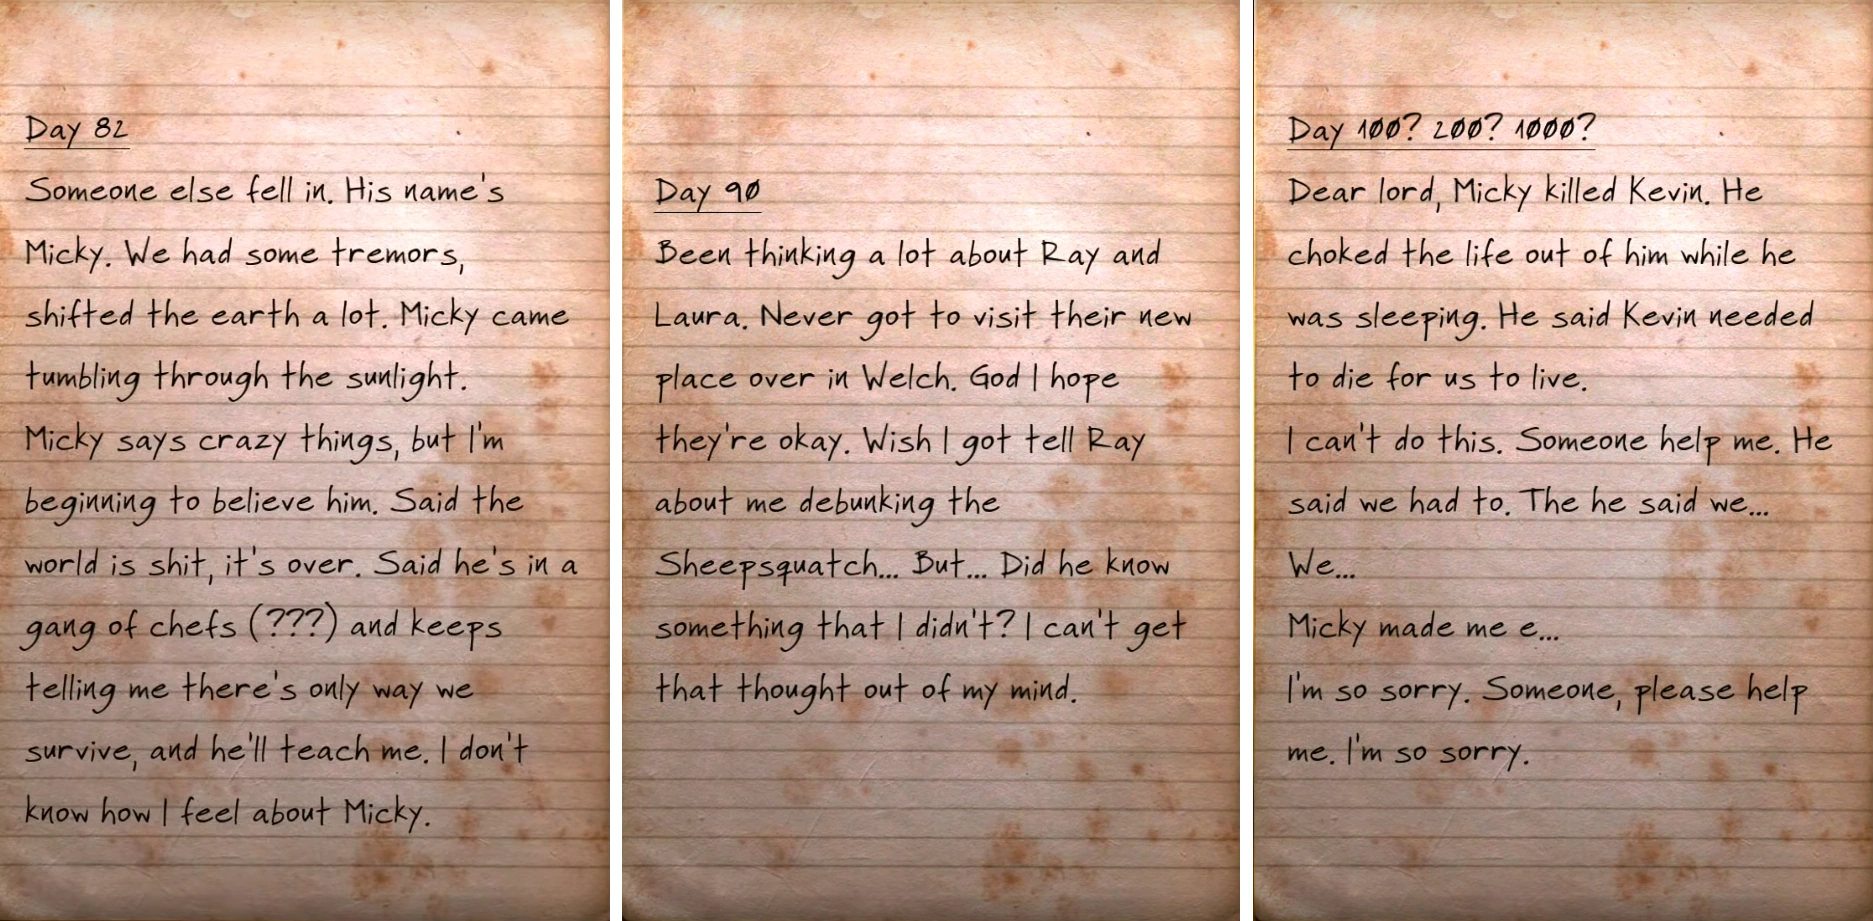 Day 82
Someone else fell in. His name's
Micky. We had some tremors,
shifted the earth a lot. Micky came
tumbling through the sunlight.
Micky says crazy things, but I'm
beginning to believe him. Said the
world is shit, it's over. Said he's in a
gang of chefs (???) and keeps
telling me there's only way we
survive, and he'll teach me. I don't
know how I feel about Micky.
Day 90
Been thinking a lot about Ray and
Laura. Never got to visit their new
place over in Welch. God I hope
they're okay. Wish I got tell Ray
about me debunking the
Sheepsquatch... But... Did he know
something that I didn't? I can't get
that thought out of my mind.
Day 100? 200? 1000?
Dear lord, Micky killed Kevin. He
choked the life out of him while he
was sleeping. He said Kevin needed
to die for us to live.
I can't do this. Someone help me. He
said we had to. The he said we...
We...
Micky made me e...
I'm so sorry. Someone, please help
me. I'm so sorry.